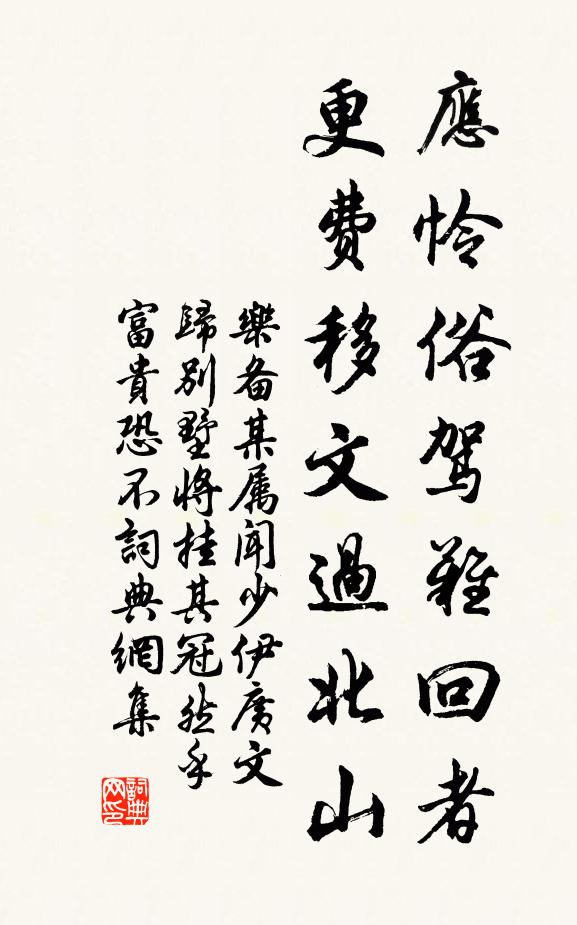 應怜俗駕難回者
更费移文過北山
樂备某属闻少伊廣文
歸别墅將挂其冠然乎
富貴恐不詞典網集
詞典
网印